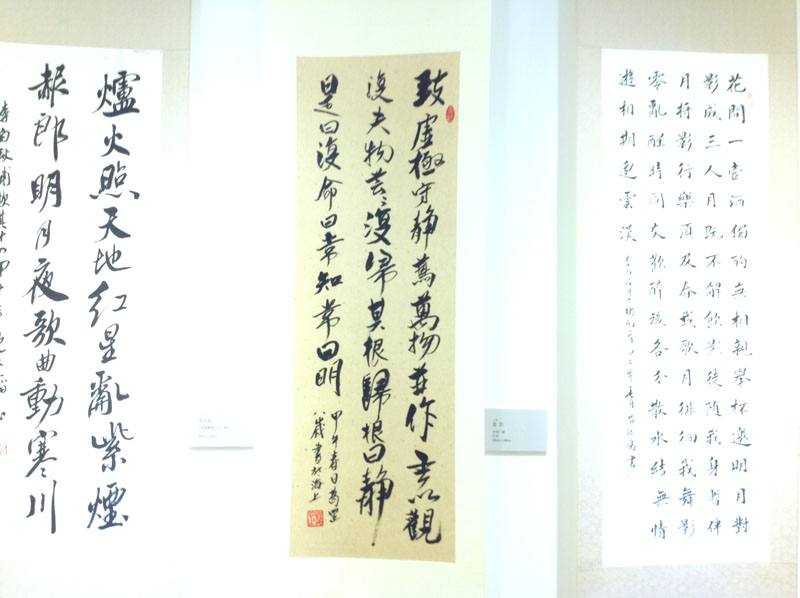 爐火照天地红星亂紫煙
赧郎明月夜歌曲動寒川
李白秋浦歌其十四
致虛極守静篤萬物並作吾以觀
復夫物芸〻復歸其根歸根曰静
是曰復命曰常知常曰明
甲午春日
書於海上
花間一壺酒獨酌無相親舉杯邀明月對
影成三人月既不解飲影徒隨我身暫伴
月將影行樂須及春我歌月徘徊我舞影
零亂醒時同交歡醉後各分散永結無情
遊相期邈雲漢